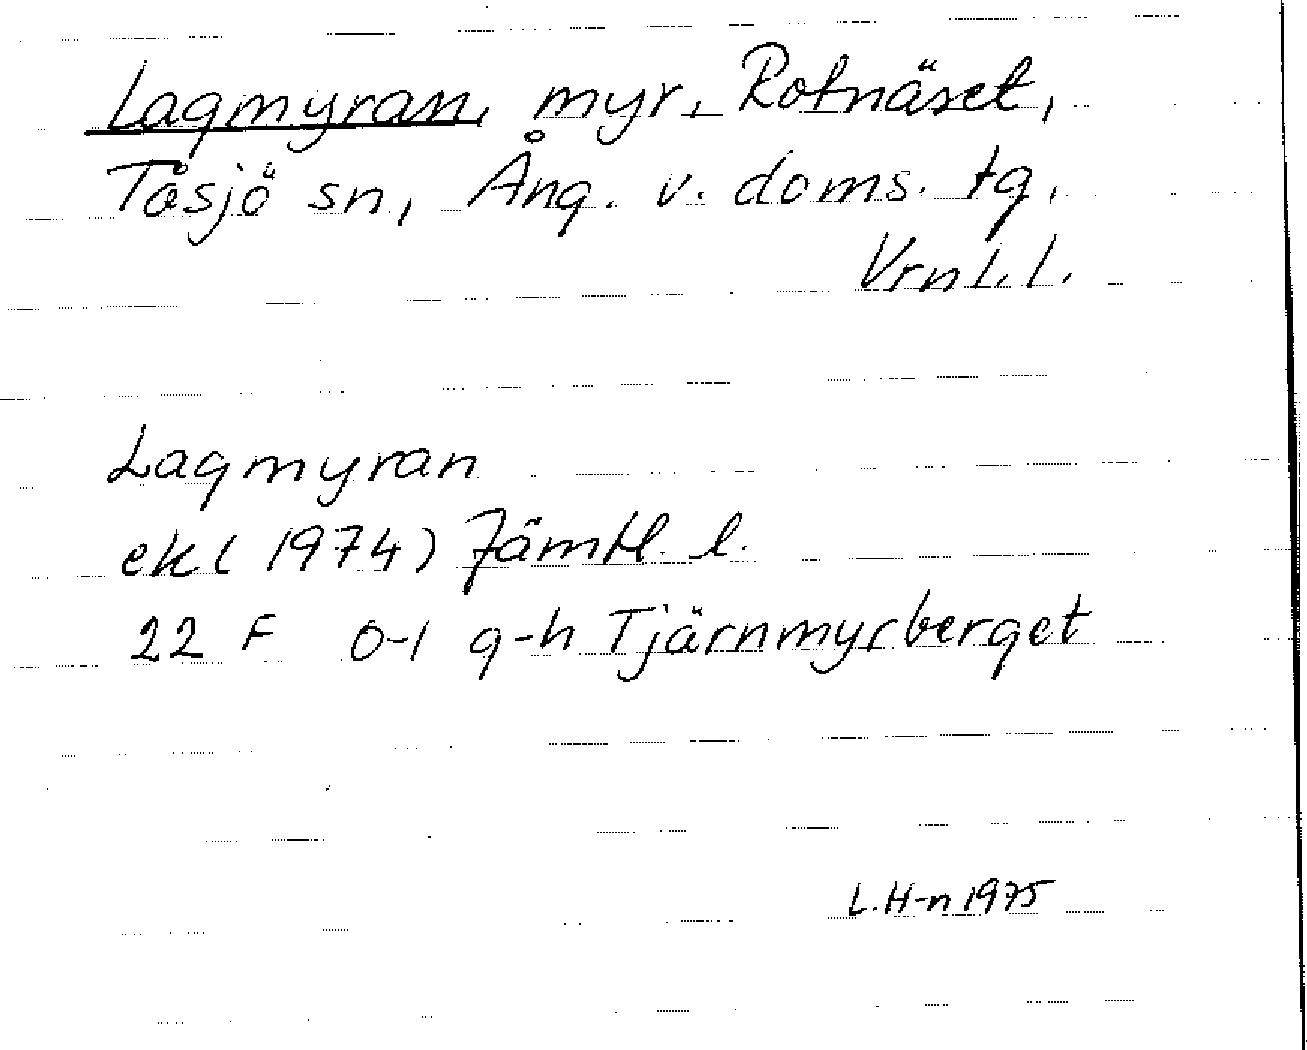 Lagmyran, myr, Rotnäset,
Tåsjö sn, Ång. v. doms. tg,
Vrnl. l.
Lagmyran
ek ( 1974) Jämtl. l.
22 F 0-1 g-h Tjärnmyrberget
L.H-n 1975